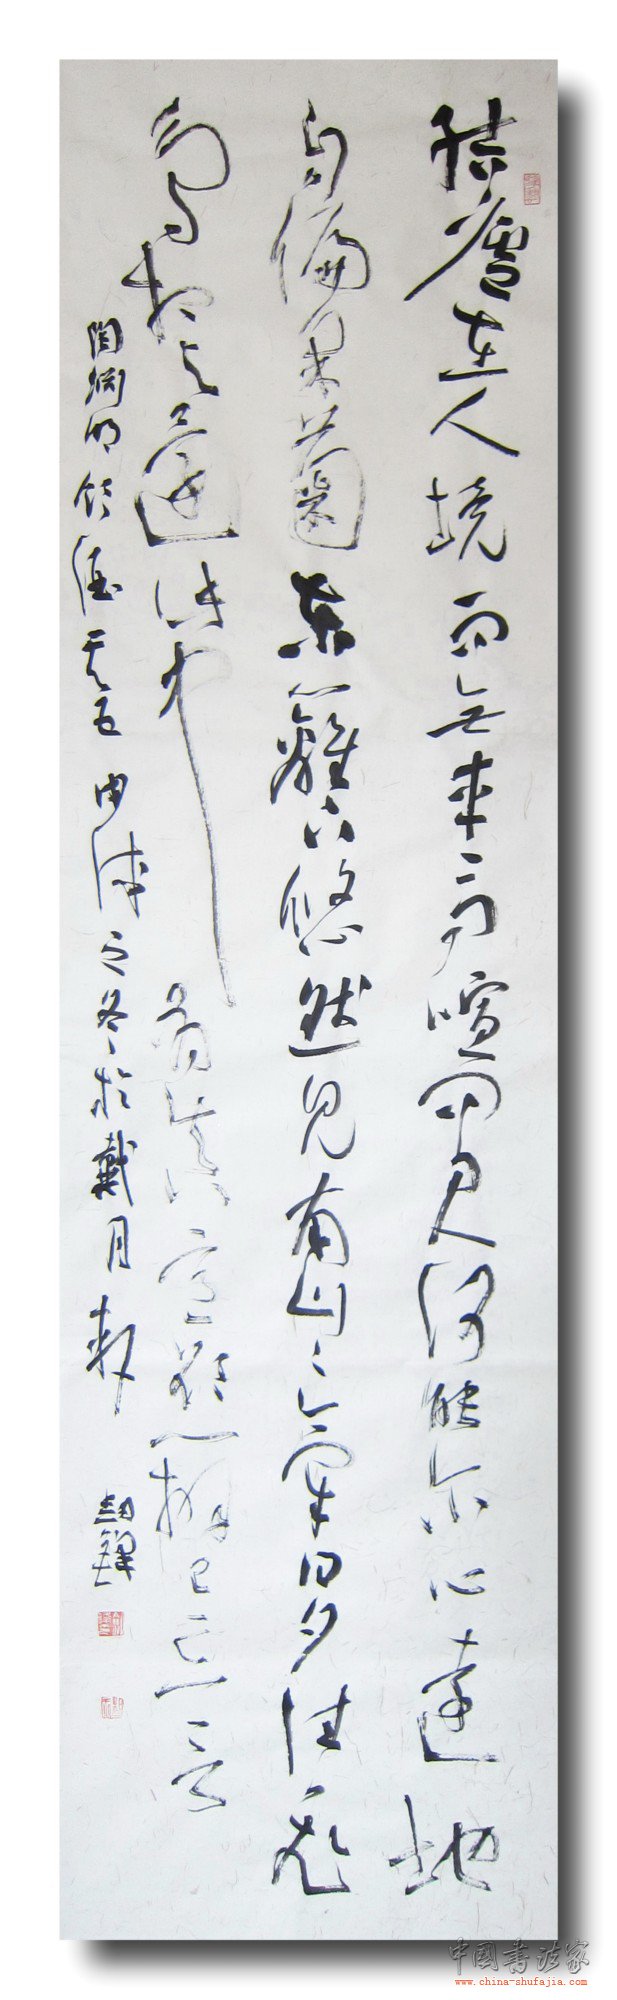 結廬在人境而无車馬喧問君何能尔心遠地
自偏采菊東籬下悠然見南山山氣日夕佳飛
鳥相與還此中有真意欲辨已忘言
陶淵明飲酒其五之冬於戴月軒
中國書法家
www.china-shufajia.com